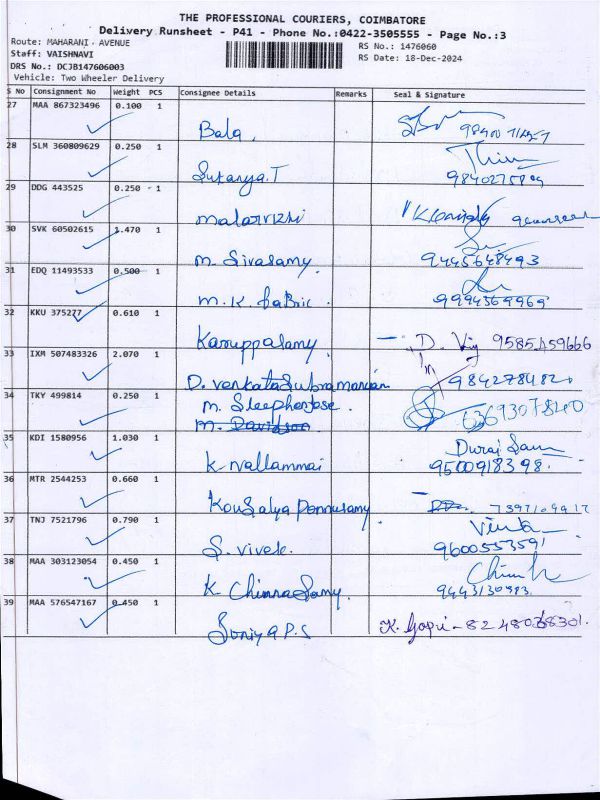 THE PROFESSIONAL COURIERS, COIMBATORE
Delivery Runsheet - P41 - Phone No.:0422-3505555 - Page No.:3
Route: MAHARANI . AVENUE
RS No.: 1476060
Staff: VAISHNAVI
RS Date: 18-Dec-2024
DRS No.: DCJB147606003
Vehicle: Two Wheeler Delivery
S No Consignment No Weight PCS Consignee Details Remarks Seal & Signature
27 MAA 867323496 0.100 1
Bala.
28 SLM 360809629 0.250 1
Sukanya.T
29 DDG 443525 0.250 1
malarvizhi
30 SVK 60502615 1.470 1
m. Sivasamy. 9445648493
31 EDQ 11493533 0.500 1
m. K fabric. 9994569969
32 KKU 375277 0.610 1
Karuppasamy D. Vij 9585459666
33 IXM 507483326 2.070 1
D. venkatasubramanian 9842784820
34 TKY 499814 0.250 1
m. Sleepherjose. 6369307840
m. Davidson
35 KDI 1580956 1.030 1
K nallammai 9500918398.
36 MTR 2544253 0.660 1
Kousalya Ponnusamy
37 TNJ 7521796 0.790 1
S. vivek. 9600553591
38 MAA 303123054 0.450 1
K. Chinnasamy.
39 MAA 576547167 0.450 1
Soniya P.S K. Gopi -